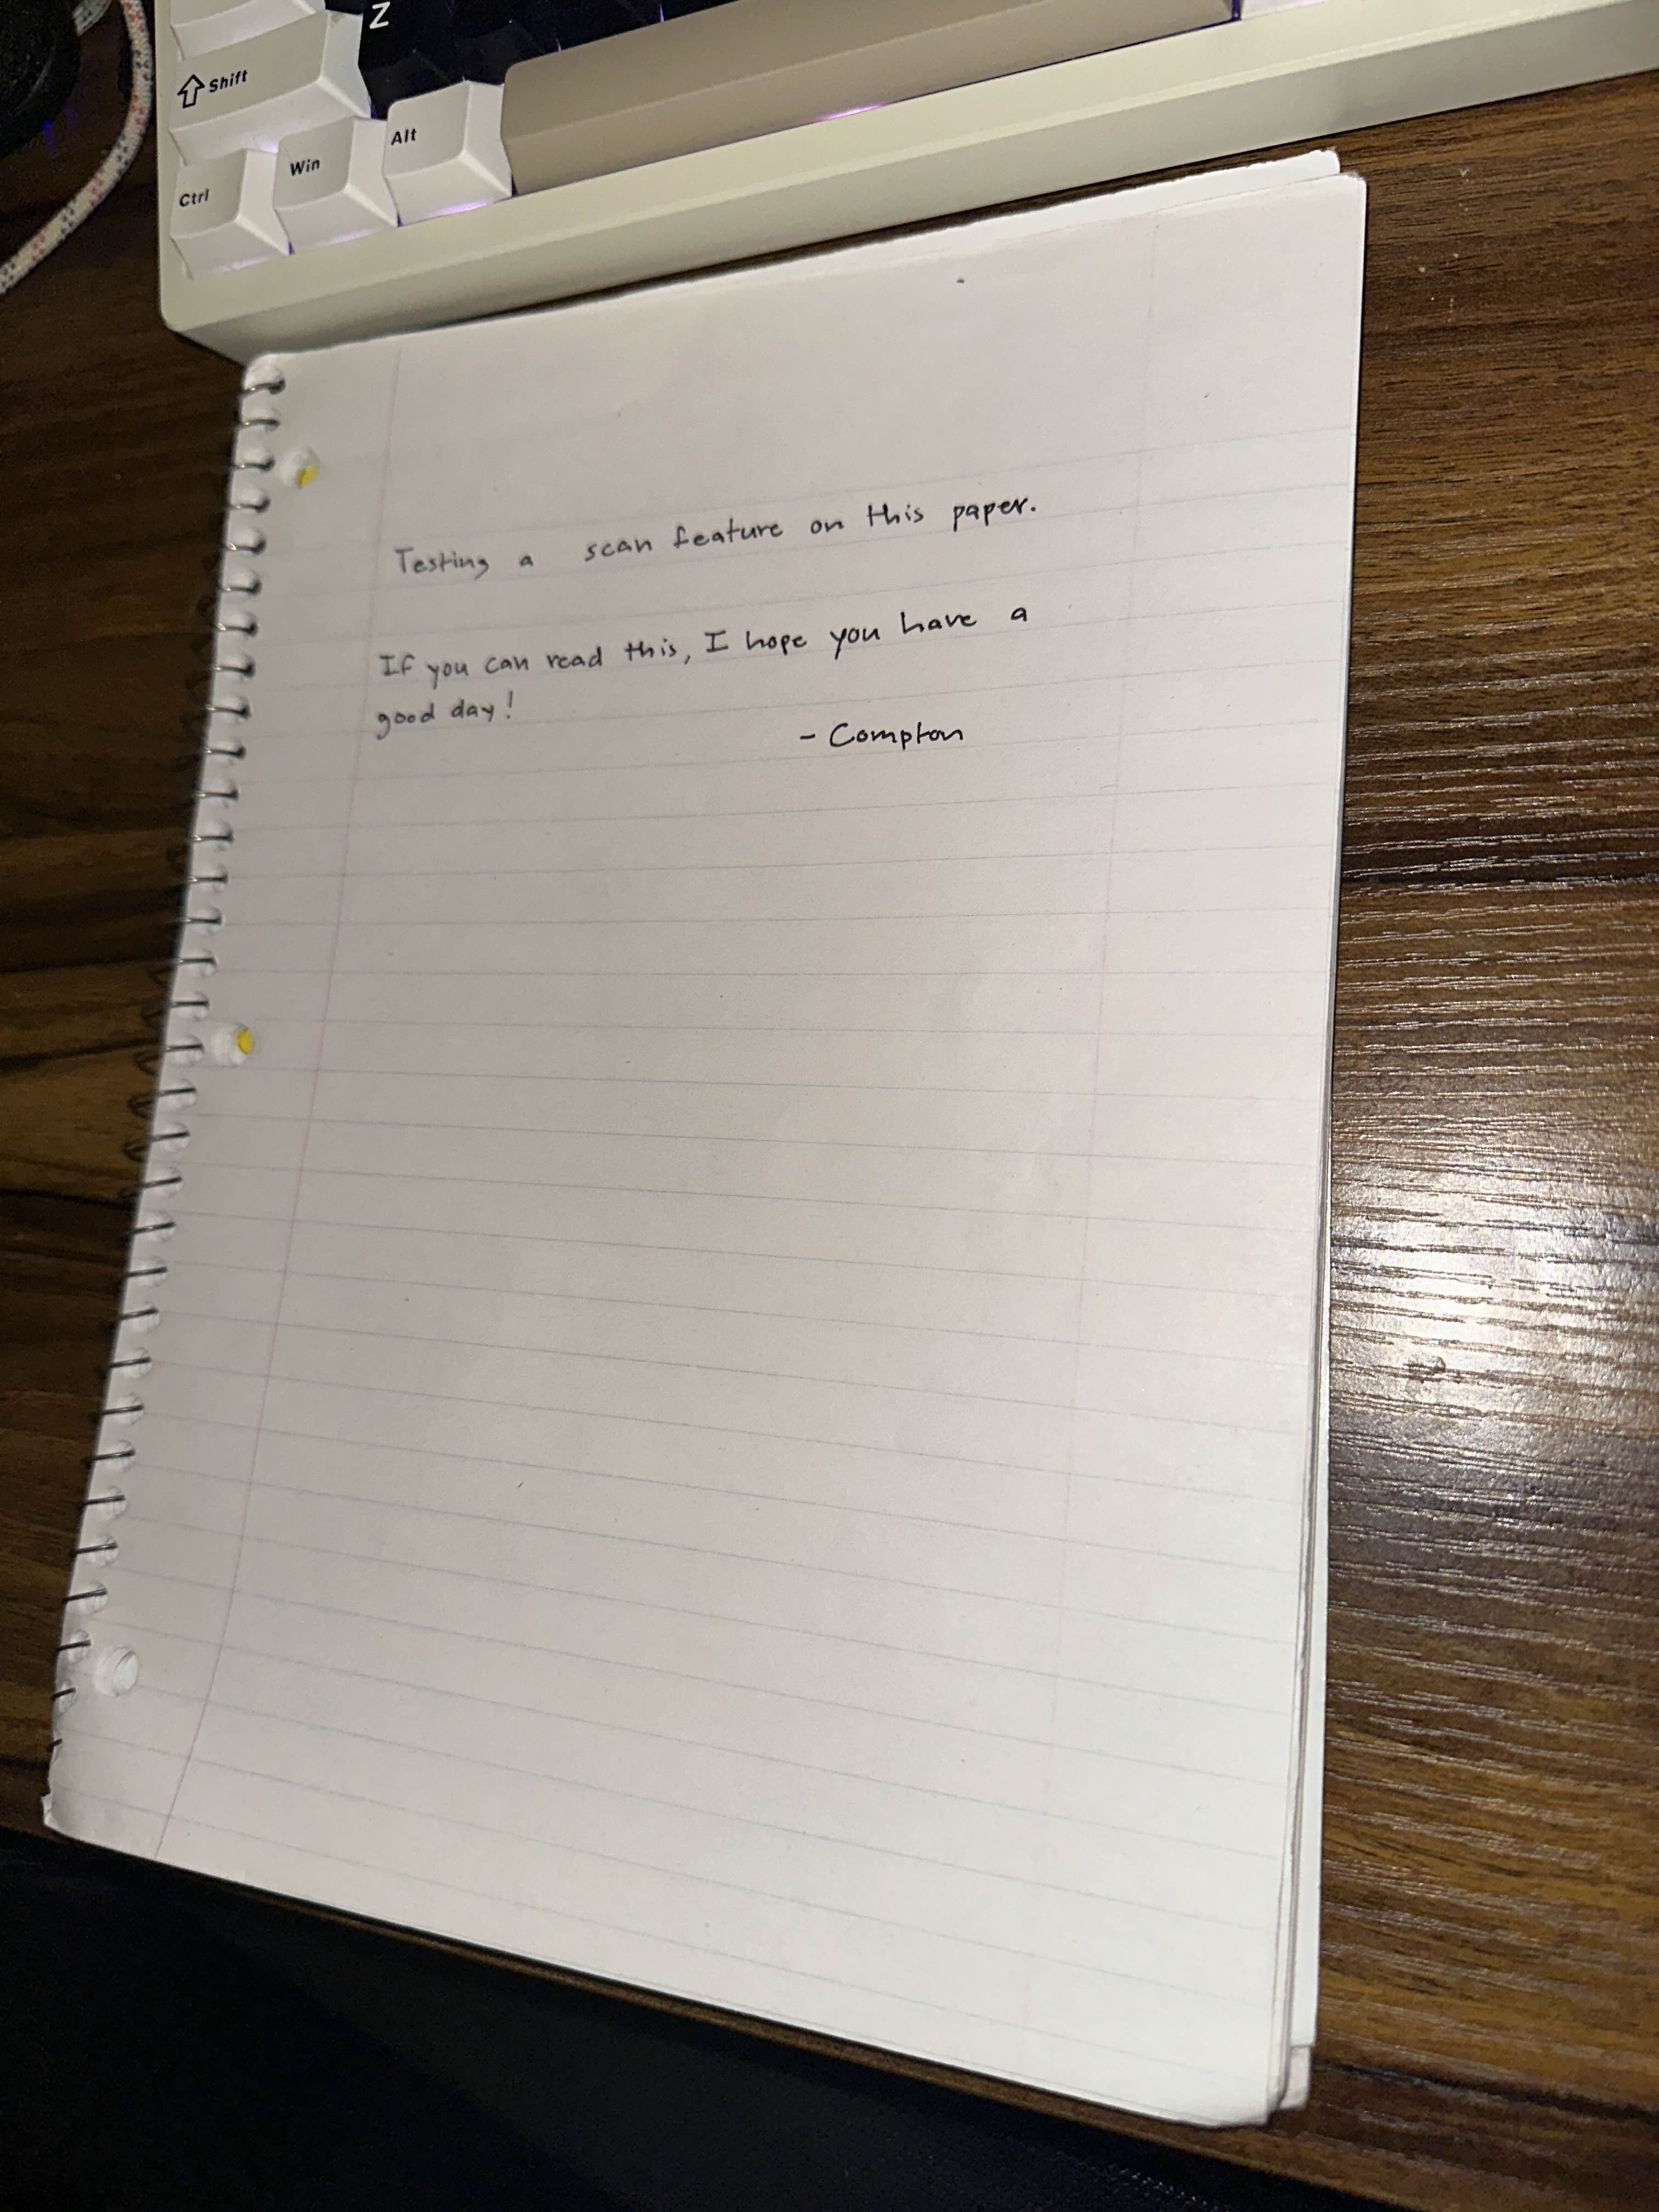 Z
Shift
Alt
Win
Ctrl
Testing a scan feature on this paper.
If you can read this, I hope you have a
good day!
- Compton